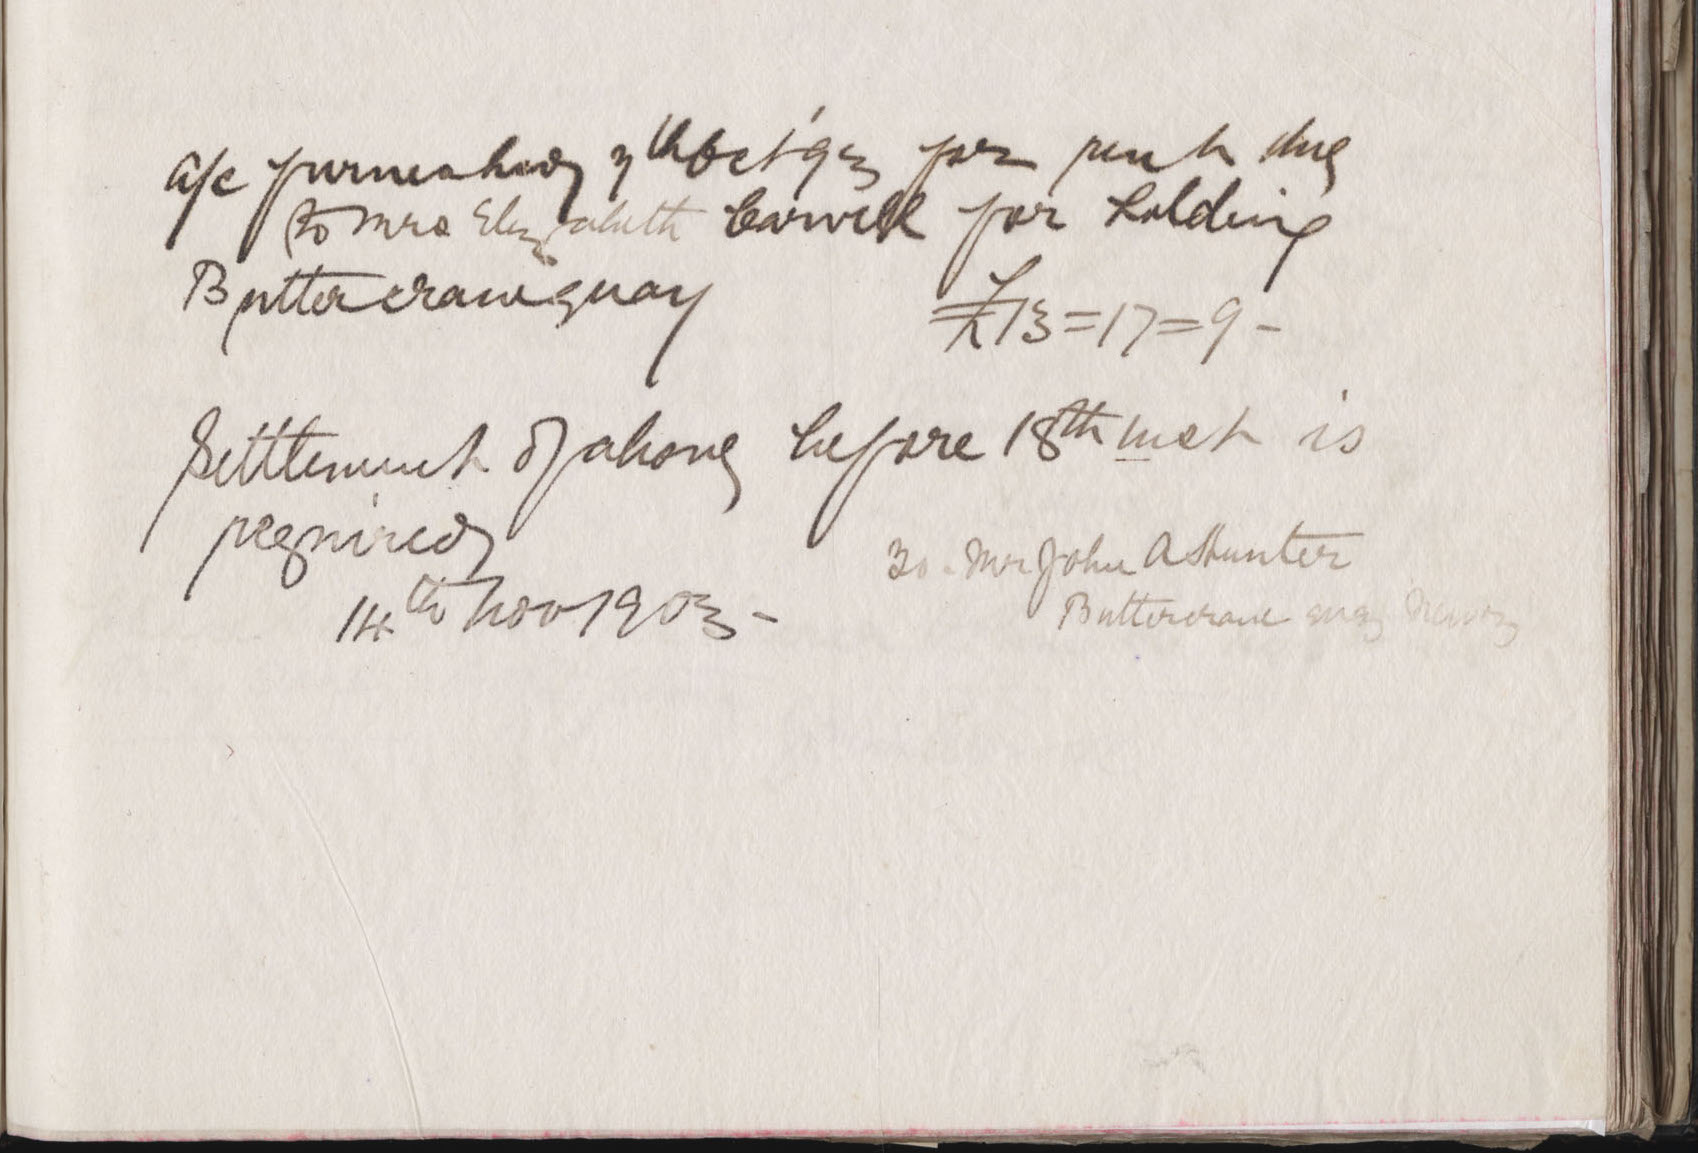 a/c furnished 7th Oct '93 for rent due
to Mrs Elizabeth Carvill for holding
Buttercrane quay
£13=17=9-
Settlement of above before 18th inst is
required
14th Nov 1903-
To. Mr John A Hunter
Buttercrane quay Newry